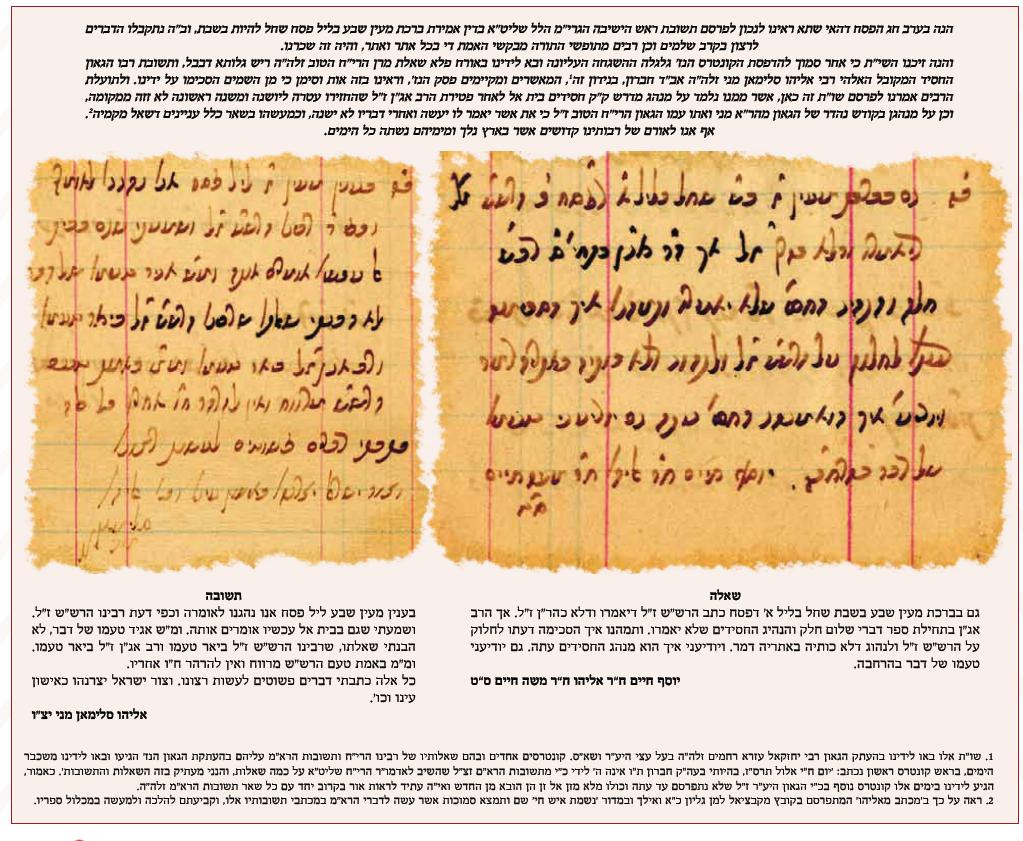 הנה בערב חג הפסח דהאי שתא ראינו לנכון לפרסם תשובת ראש הישיבה הגרי"מ הלל שליט"א בדין אמירת ברכת מעין שבע בליל פסח שחל להיות בשבת, וב"ה נתקבלו הדברים
לרצון בקרב שלמים וכן רבים מתופשי התורה מבקשי האמת די בכל אתר ואתר, והיה זה שכרנו.
והנה זיכנו השי"ת כי אחר סמוך להדפסת הקונטרס הנז' גלגלה ההשגחה העליונה ובא לידינו באורח פלא שאלת מרן הרי"ח הטוב זלה"ה ריש גלותא דבבל, ותשובת רבו הגאון
החסיד המקובל האלהי רבי אליהו סלימאן מני זלה"ה אב"ד חברון, בנידון זה1, המאשרים ומקיימים פסק הנז', וראינו בזה אות וסימן כי מן השמים הסכימו על ידינו. ולתועלת
הרבים אמרנו לפרסם שו"ת זה כאן, אשר ממנו נלמד על מנהג מדרש ק"ק חסידים בית אל לאחר פטירת הרב אג"ן ז"ל שהחזירו עטרה ליושנה ומשנה ראשונה לא זזה ממקומה,
וכן על מנהגן בקודש נהדר של הגאון מהר"א מני ואתו עמו הגאון הרי"ח הטוב ז"ל כי את אשר יאמר לו יעשה ואחרי דבריו לא ישנה, וכמעשהו בשאר כלל עניינים דשאל מקמיה2.
אף אנו לאורם של רבותינו קדושים אשר בארץ נלך ומימיהם נשתה כל הימים.
שאלה
גם בברכת מעין שבע בשבת שחל בליל א' דפסח כתב הרש"ש ז"ל דיאמרו ודלא כהר"ן ז"ל. אך הרב
אג"ן בתחילת ספר דברי שלום חלק והנהיג החסידים שלא יאמרו. ותמהנו איך הסכימה דעתו לחלוק
על הרש"ש ז"ל ולנהוג דלא כותיה באתריה דמר. ויודיעני איך הוא מנהג החסידים עתה. גם יודיעני
טעמו של דבר בהרחבה.
יוסף חיים ח"ר אליהו ח"ר משה חיים ס"ט
תשובה
בענין מעין שבע ליל פסח אנו נהגנו לאומרה וכפי דעת רבינו הרש"ש ז"ל.
ושמעתי שגם בבית אל עכשיו אומרים אותה. ומ"ש אגיד טעמו של דבר, לא
הבנתי שאלתו, שרבינו הרש"ש ז"ל ביאר טעמו ורב אג"ן ז"ל ביאר טעמו.
ומ"מ באמת טעם הרש"ש מרווח ואין להרהר ח"ו אחריו.
כל אלה כתבתי דברים פשוטים לעשות רצונו. וצור ישראל יצרנהו כאישון
עינו וכו'.
אליהו סלימאן מני יצ"ו
1. שו"ת אלו באו לידינו בהעתק הגאון רבי יחזקאל עזרא רחמים זלה"ה בעל עצי היע"ר ושא"ס. קונטרסים אחדים ובהם שאלותיו של רבינו הרי"ח ותשובות הרא"מ עליהם בהעתקת הגאון הנז' הגיעו ובאו לידינו משכבר
הימים, בראש קונטרס ראשון נכתב: 'יום ח"י אלול תרס"ז, בהיותי בעה"ק חברון ת"ו אינה ה' לידי כ"י מתשובות הרא"ם זצ"ל שהשיב לאדמו"ר הרי"ח שליט"א על כמה שאלות, והנני מעתיק בזה השאלות והתשובות'. כאמור,
הגיע לידינו בימים אלו קונטרס נוסף בכ"י הגאון היע"ר ז"ל שלא נתפרסם עד עתה וכולו מלא מזן אל זן הן הובא מן החדש ואי"ה עתיד לראות אור בקרוב יחד עם כל שאר תשובות הרא"מ זלה"ה.
2. ראה על כך ב'מכתב מאליהו' המתפרסם בקובץ מקבציאל למן גליון כ"א ואילך ובמדור 'נשמת איש חי' שם ותמצא סמוכות אשר עשה לדברי הרא"מ במכתבי תשובותיו אלו, וקביעתם להלכה ולמעשה במכלול ספריו.